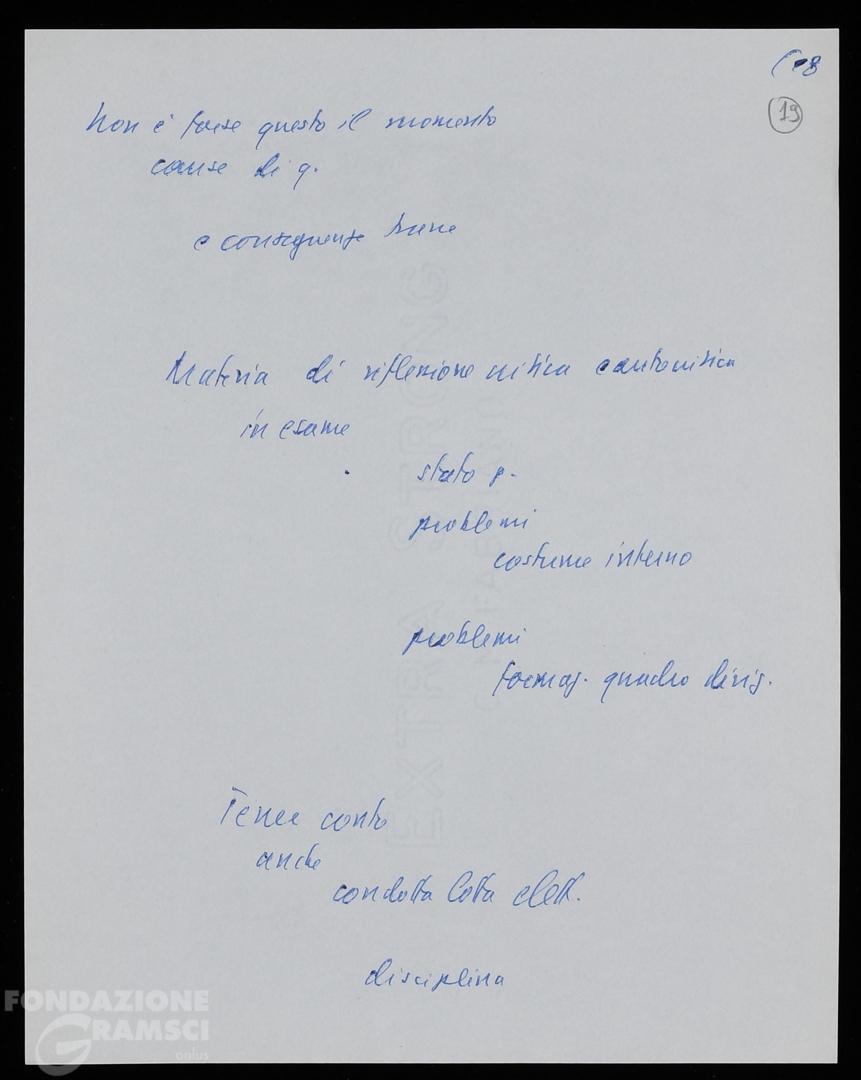 8
19
Non è forse questo il momento
cause di q.
e conseguenze trarre
Materia di riflessione critica e autocritica
in esame
stato p.
problemi
costume interno
problemi
formaz. quadro dirig.
Tener conto
anche
condotta lotta elett.
disciplina
EXTRA STRONG
FONDAZIONE
GRAMSCI
onlus